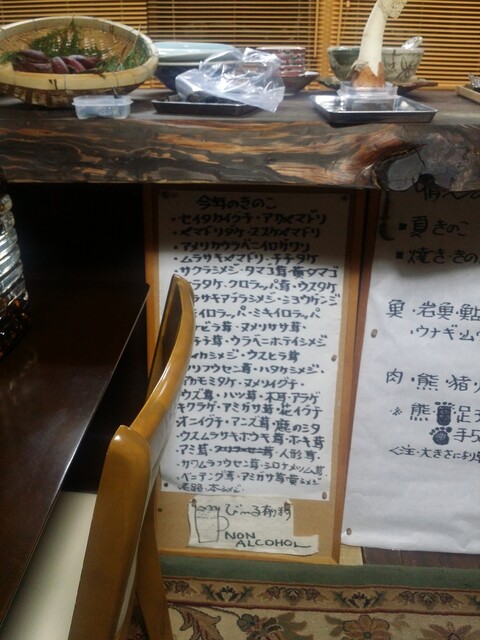 今年のきのこ
・セイタカイグチ・アカヤマドリ
・ヤマドリタケ・ススケヤマドリ
・アメリカウラベニイロガワリ
・ムラサキヤマドリ・チチタケ
サクラシメジ・タマゴ茸・黄タマゴ
ラタケ・クロラッパ茸・ウスタケ
ラサキアブラシメジ・ショウゲンジ
イロラッパ・ミキイロラッパ
ビラ茸・ヌメリササ茸
チ茸・ウラベニホテイシメジ
カシメジ・ウスヒラ茸
リフウセン茸・ハタケシメジ
アカモミタケ・ヌメリイグチ
ウズ茸・ハツ茸・木耳・アラゲ
キクラゲ・アミガサ茸・花イグチ
オニイグチ・アンズ茸・鹿のミタ
ウスムラサキホウキ茸・ホキ茸
アミ茸・人形茸
カワムラフウセン茸・シロナメツムタケ
ベニテング茸・アミガサ茸・黄シメジ
老茸・本シメジ
びーる有り〼
NON
ALCOHOL
・夏きのこ
・焼き・きの
魚・岩魚・鮎
・ウナギ・ムツ
肉・熊・猪・
※熊 足
手
<注・大きさにより